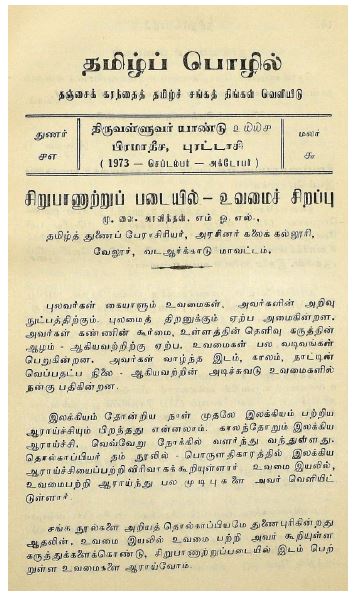 தமிழ்ப் பொழில்
தஞ்சைக் கரந்தைத் தமிழ்ச் சங்கத் திங்கள் வெளியீடு
துணர்
சஎ
திருவள்ளுவர் யாண்டு
பிரமாதீச, புரட்டாசி
( 1973 — செப்டம்பர் — அக்டோபர் )
மலர்
சு
சிறுபாணற்றுப் படையில் – உவமைச் சிறப்பு
மு. வை. அரவிந்தன். எம் ஓ.எல்.,
தமிழ்த் துணைப் பேராசிரியர், அரசினர் கலைக் கல்லூரி,
வேலூர், வடஆர்க்காடு மாவட்டம்.
புலவர்கள் கையாளும் உவமைகள், அவர்களின் அறிவு
நுட்பத்திற்கும், புலமைத் திறனுக்கும் ஏற்ப அமைகின்றன.
அவர்கள் கண்ணின் கூர்மை, உள்ளத்தின் தெளிவு கருத்தின்
ஆழம் - ஆகியவற்றிற்கு ஏற்ப, உவமைகள் பல வடிவங்கள்
பெறுகின்றன. அவர்கள் வாழ்ந்த இடம், காலம், நாட்டின்
வெப்பதட்ப நிலை - ஆகியவற்றின் அடிச்சுவடு உவமைகளில்
நன்கு பதிகின்றன.
இலக்கியம் தோன்றிய நாள் முதலே இலக்கியம் பற்றிய
ஆராய்ச்சியும் பிறந்தது என்னலாம். காலந்தோறும் இலக்கிய
ஆராய்ச்சி, வெவ்வேறு நோக்கில் வளர்ந்து வந்துள்ளது.
தொல்காப்பியர் தம் நூலில் - பொருளதிகாரத்தில் இலக்கிய
ஆராய்ச்சியைப்பற்றி விரிவாகக் கூறியுள்ளார். உவமை இயலில்,
உவமைபற்றி ஆராய்ந்து பல முடிபுகளை அவர் வெளியிட்
டுள்ளார்.
சங்க நூல்களை அறியத் தொல்காப்பியமே துணைபுரிகின்றது
ஆதலின், உவமை இயலில் உவமை பற்றி அவர் கூறியுள்ள
கருத்துக்களைக்கொண்டு, சிறுபாணற்றுப்படையில் இடம் பெற்
றுள்ள உவமைகளை ஆராய்வோம்.